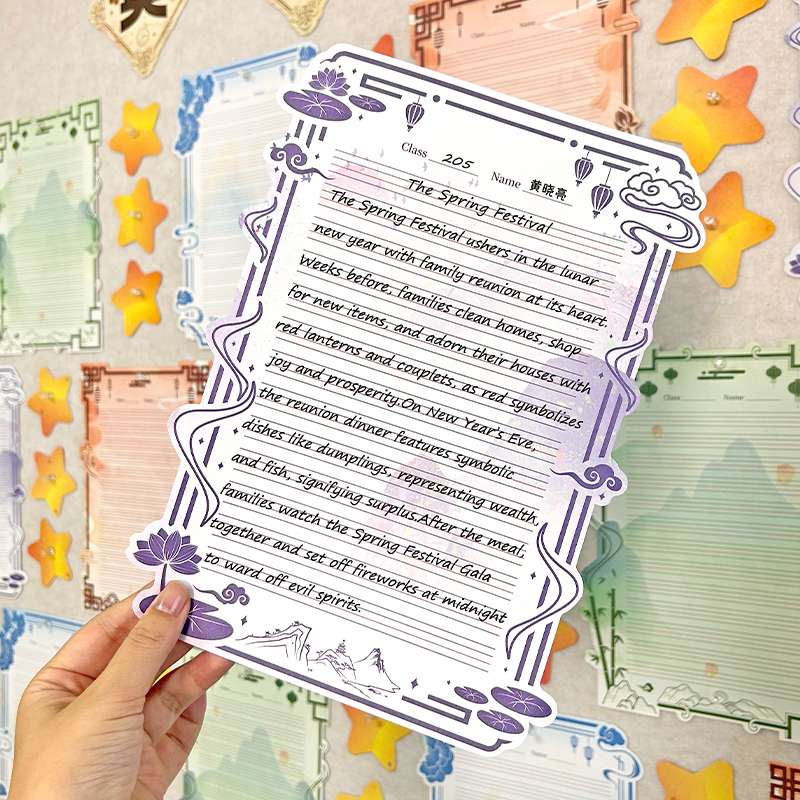 Class 205 Name 黄晓亮
The Spring Festival
The Spring Festival ushers in the lunar
new year with family reunion at its heart.
Weeks before, families clean homes, shop
for new items, and adorn their houses with
red lanterns and couplets. as red symbolizes
joy and prosperity.On New Year's Eve,
the reunion dinner features symbolic
dishes like dumplings, representing wealth,
and fish, signifying surplus.After the meal.
families watch the Spring Festival Gala
together and set off fireworks at midnight
to ward off evil spirits.
Class Name